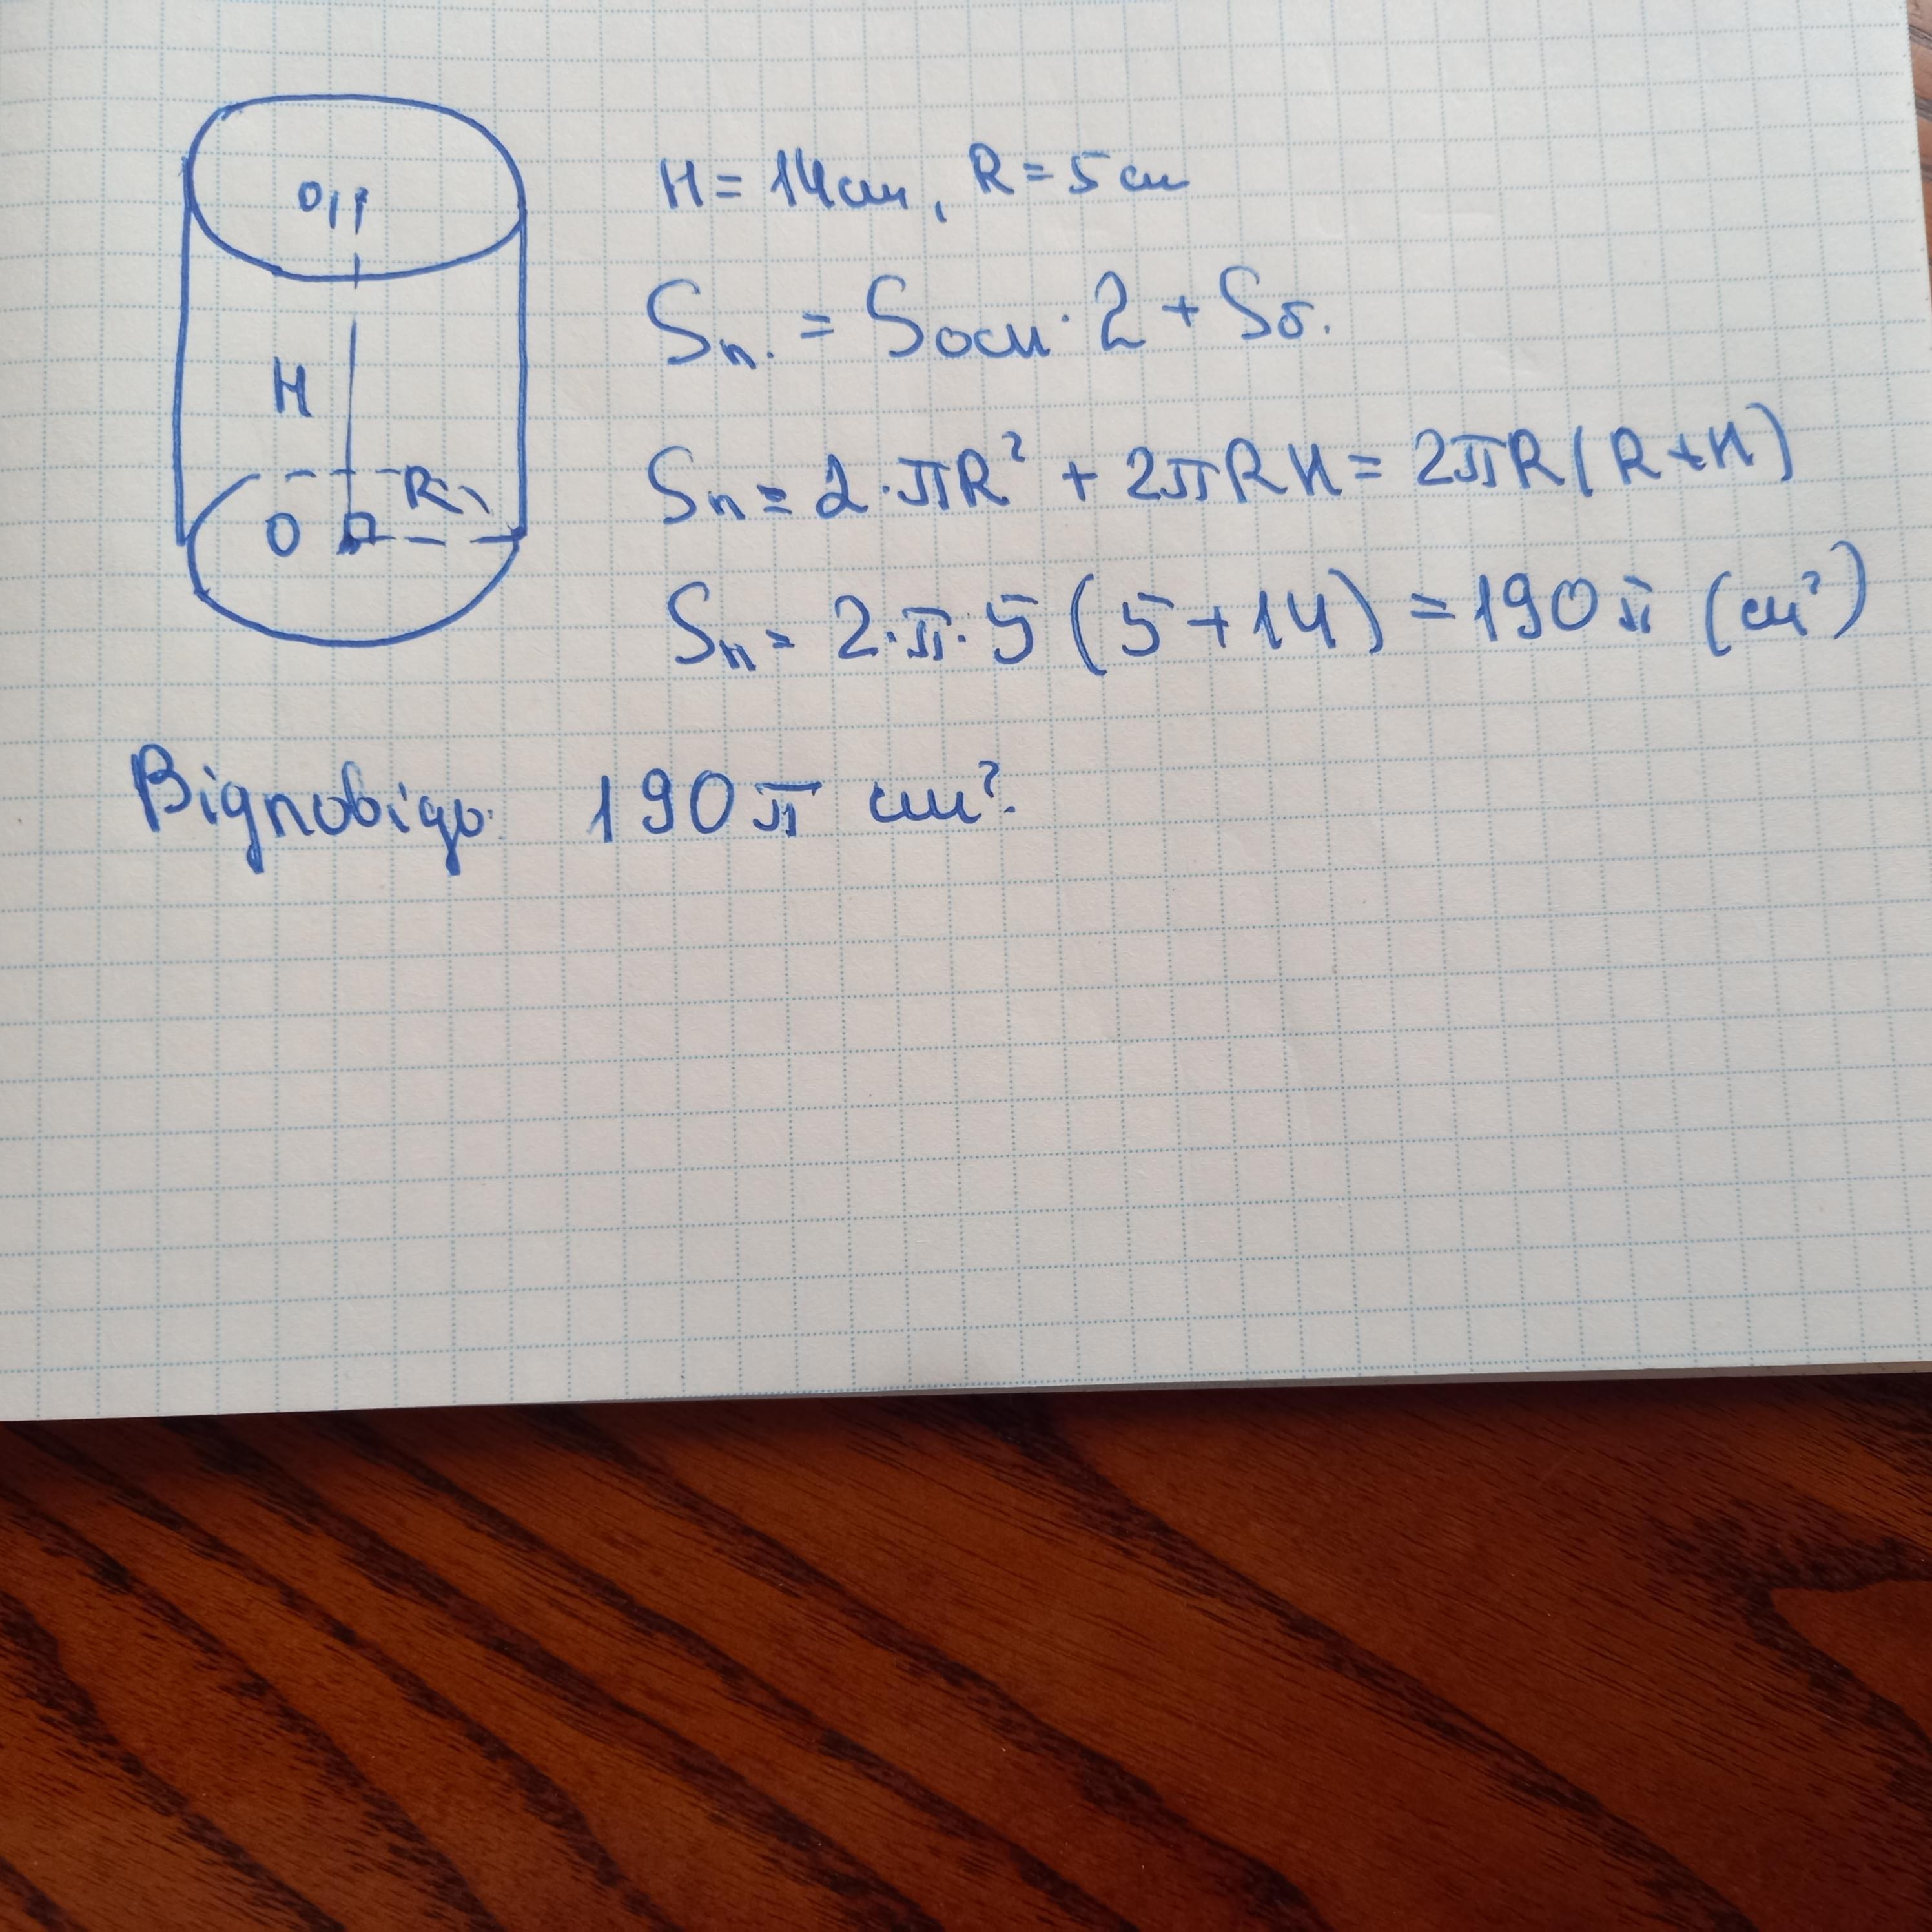 O₁
H = 14 см, R = 5 см
Sп. = Sосн · 2 + Sб.
H
R
O
Sп = 2 · πR² + 2πRH = 2πR(R + H)
Sп = 2 · π · 5 (5 + 14) = 190π (см²)
Відповідь: 190π см².